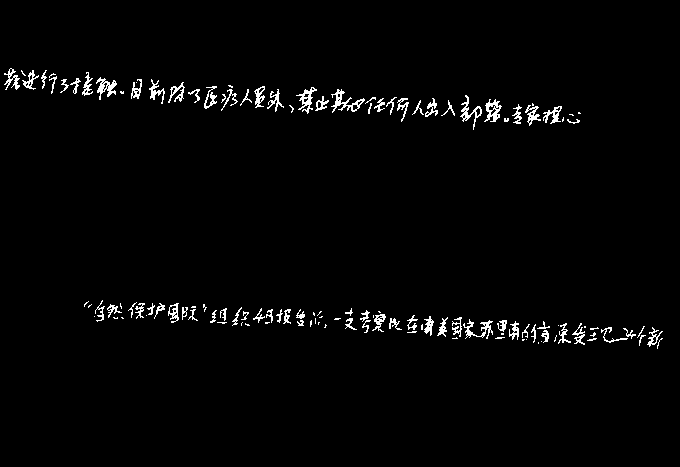 进行了接触。目前除了医疗人员外，禁止其他任何人出入部落。专家担心
“自然保护国际”组织4日报告说，一支考察队在南美国家苏里南的发现24个新